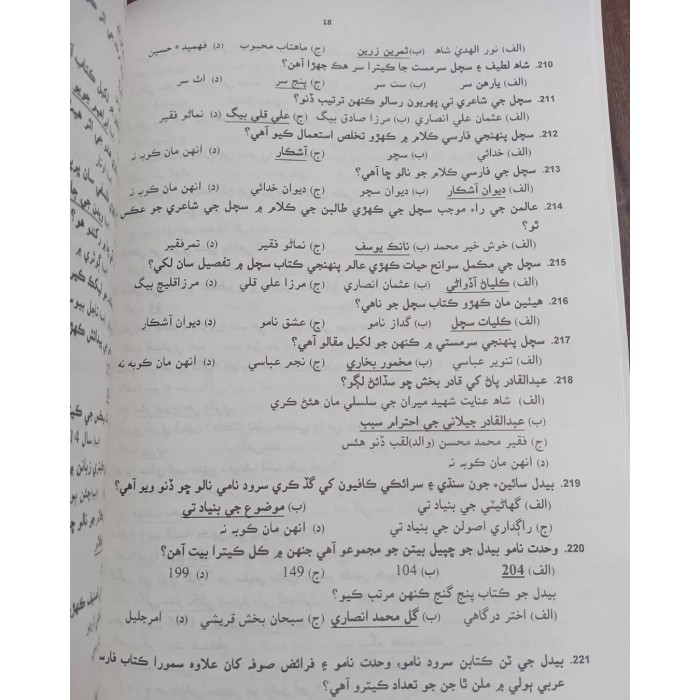 18
(الف) نور الهديٰ شاهه (ب) ثمرين زرين (ج) ماهتاب محبوب (د) فهميده حسين
210. شاهه لطيف ۽ سچل سرمست جا ڪيترا سر هڪ جهڙا آهن؟
(الف) يارهن سر (ب) ست سر (ج) پنج سر (د) اٺ سر
211. سچل جي شاعري تي پهريون رسالو ڪنهن ترتيب ڏنو؟
(الف) عثمان علي انصاري (ب) مرزا صادق بيگ (ج) علي قلي بيگ (د) نمائو فقير
212. سچل پنهنجي فارسي ڪلام ۾ ڪهڙو تخلص استعمال ڪيو آهي؟
(الف) خدائي (ب) سچو (ج) آشڪار (د) انهن مان ڪوبه نه
213. سچل جي فارسي ڪلام جو نالو ڇا آهي؟
(الف) ديوان آشڪار (ب) ديوان سچو (ج) ديوان خدائي (د) انهن مان ڪوبه نه
214. عالمن جي راءِ موجب سچل جي ڪهڙي طالبن جي ڪلام ۾ سچل جي شاعري جو عڪس
ٿو؟
(الف) خوش خير محمد (ب) نانڪ يوسف (ج) نمائو فقير (د) تمرفقير
215. سچل جي مڪمل سوانح حيات ڪهڙي عالم پنهنجي ڪتاب سچل ۾ تفصيل سان لکي؟
(الف) ڪلياڻ آڏواڻي (ب) عثمان انصاري (ج) مرزا علي قلي (د) مرزاقليچ بيگ
216. هيٺين مان ڪهڙو ڪتاب سچل جو ناهي؟
(الف) ڪليات سچل (ب) گداز نامو (ج) عشق نامو (د) ديوان آشڪار
217. سچل پنهنجي سرمستي ۾ ڪنهن جو لکيل مقالو آهي؟
(الف) تنوير عباسي (ب) مخمور بخاري (ج) نجم عباسي (د) انهن مان ڪوبه نه
218. عبدالقادر پاڻ کي قادر بخش ڇو سڏائڻ لڳو؟
(الف) شاهه عنايت شهيد ميران جي سلسلي مان هئڻ ڪري
(ب) عبدالقادر جيلاني جي احترام سبب
(ج) فقير محمد محسن (والد)لقب ڏنو هئس
(د) انهن مان ڪوبه نه
219. بيدل سائينءَ جون سنڌي ۽ سرائڪي ڪافيون کي گڏ ڪري سرود نامي نالو ڇو ڏنو ويو آهي؟
(الف) گهاڻيٽي جي بنياد تي (ب) موضوع جي بنياد تي
(ج) راڳداري اصولن جي بنياد تي (د) انهن مان ڪوبه نه
220. وحدت نامو بيدل جو ڇپيل بيتن جو مجموعو آهي جنهن ۾ ڪل ڪيترا بيت آهن؟
(الف) 204 (ب) 104 (ج) 149 (د) 199
بيدل جو ڪتاب پنج گنج ڪنهن مرتب ڪيو؟
(الف) اختر درگاهي (ب) گل محمد انصاري (ج) سبحان بخش قريشي (د) امرجليل
221. بيدل جي ٽن ڪتابن سرود نامو، وحدت نامو ۽ فرائض صوفه کان علاوه سمورا ڪتاب فارسـ
عربي ٻولي ۾ ملن ٿا جن جو تعداد ڪيترو آهي؟